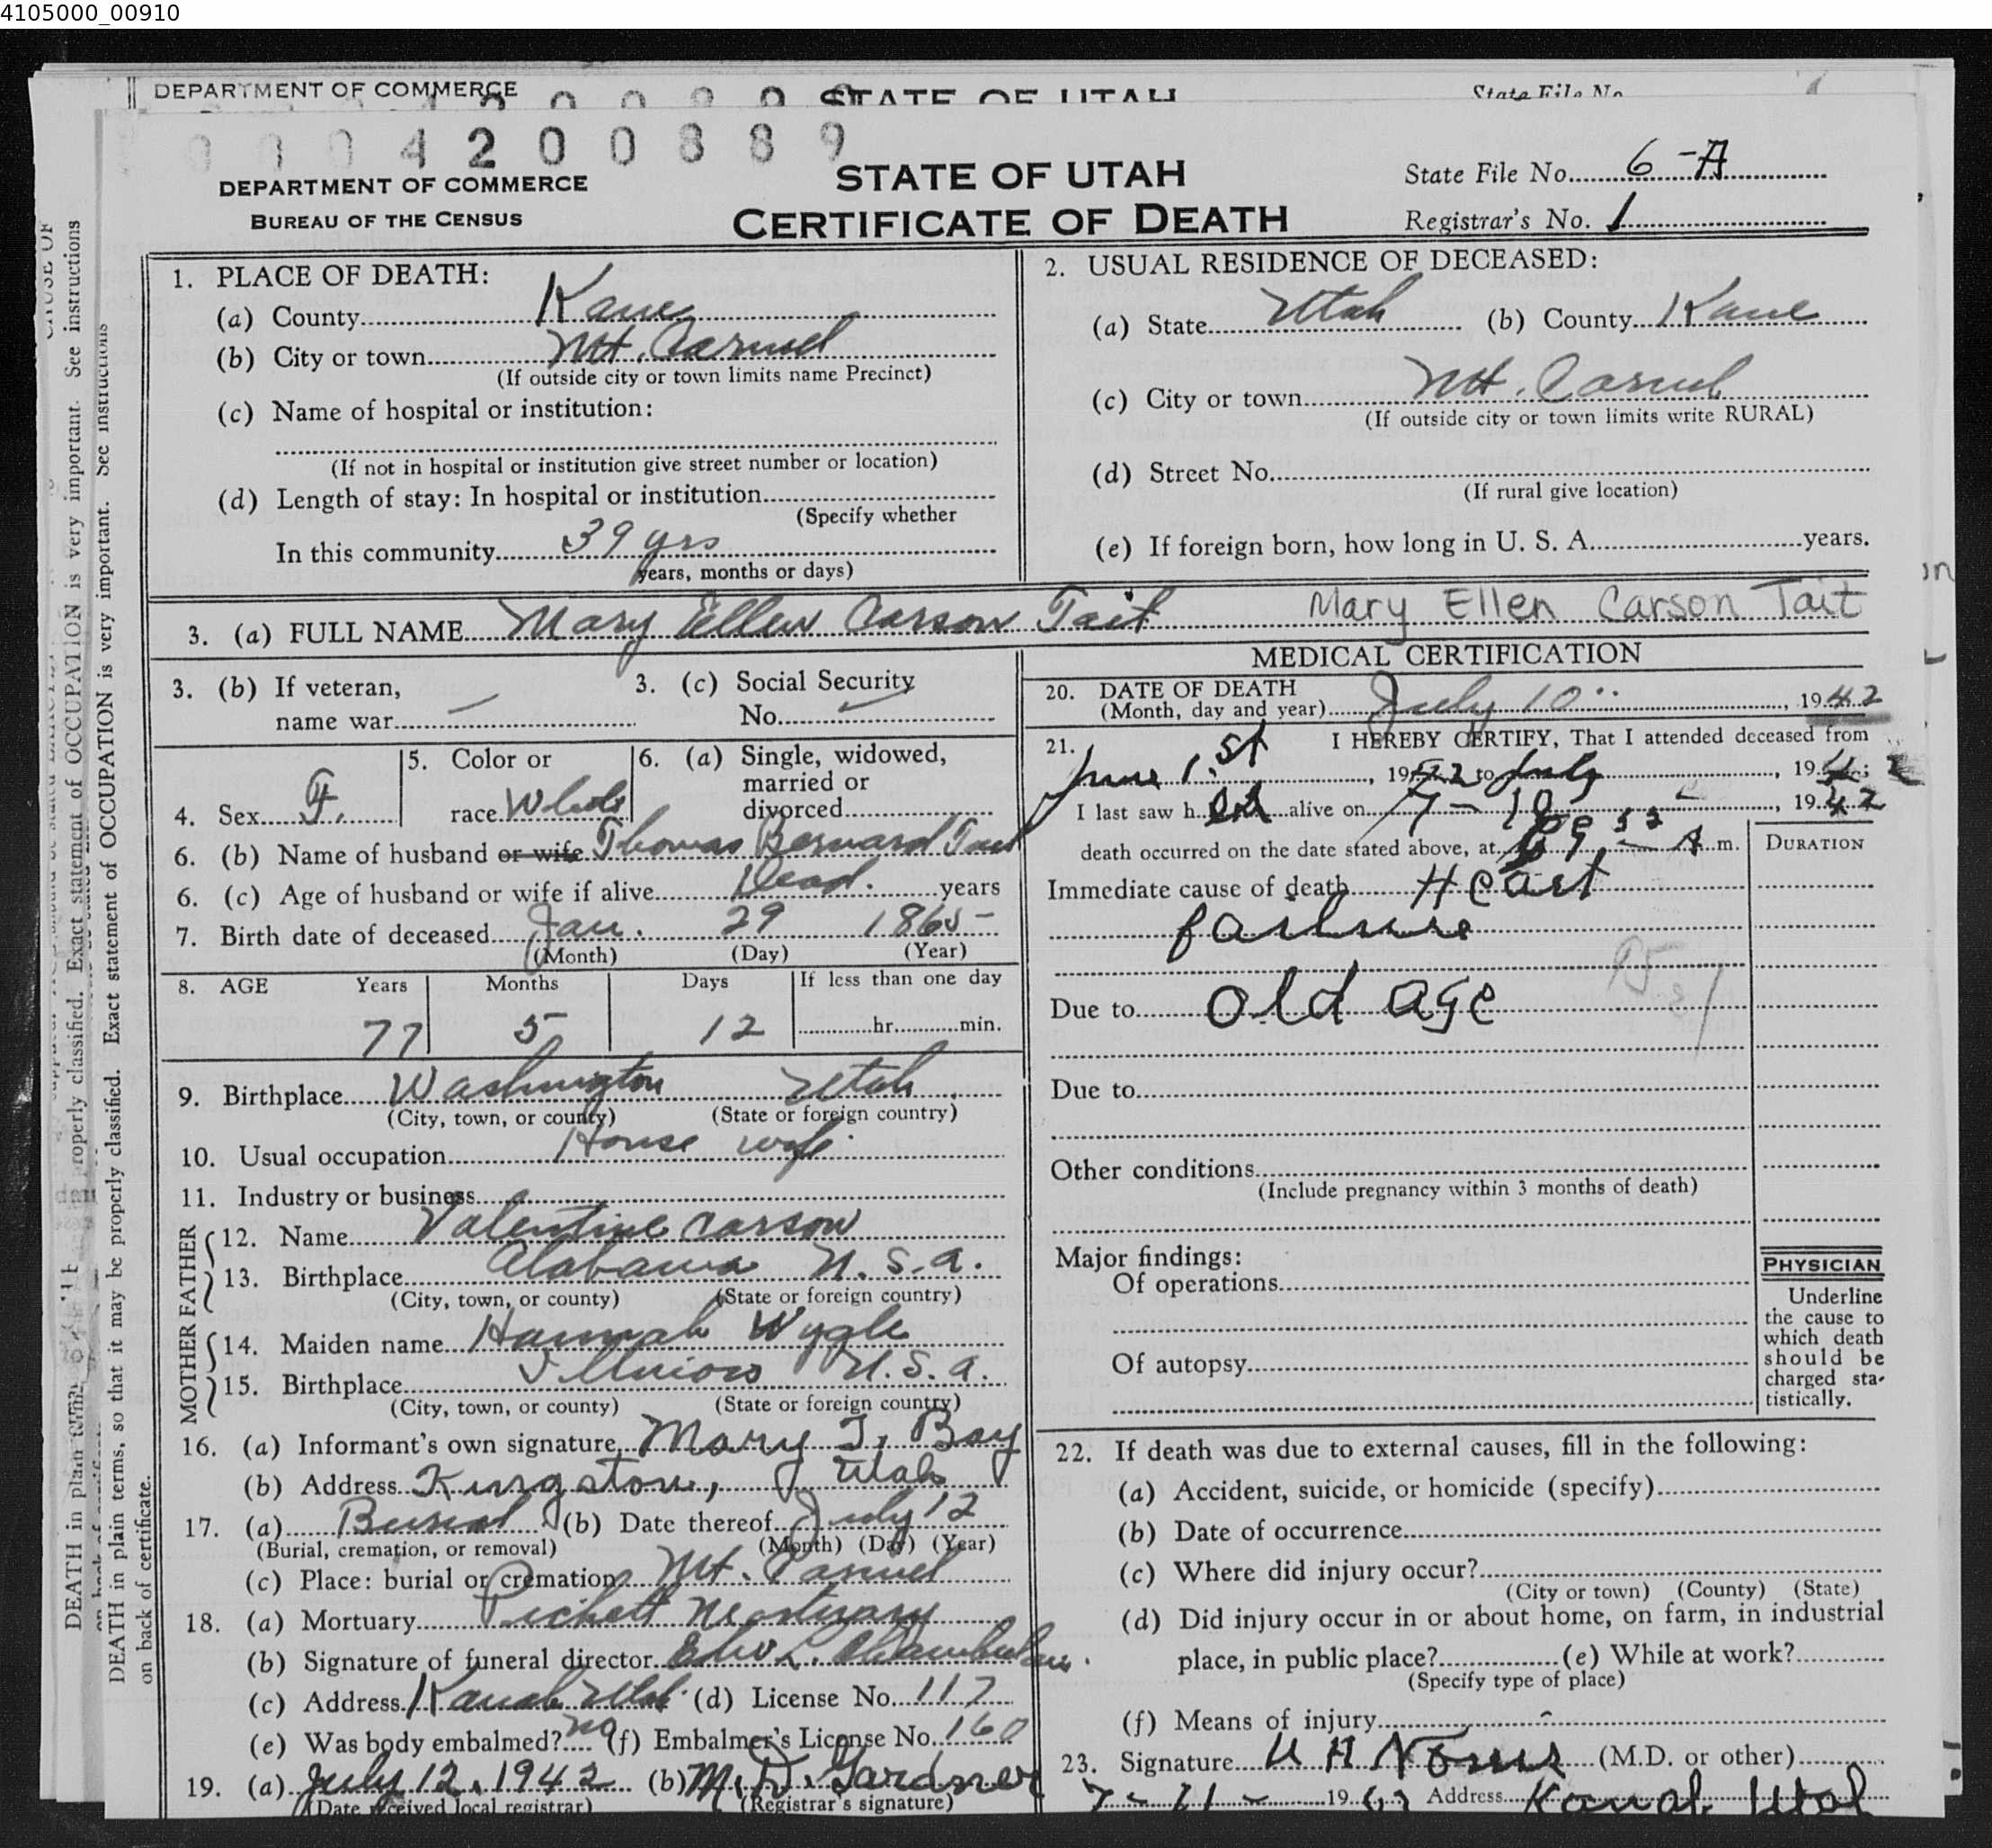 4105000_00910
DEPARTMENT OF COMMERCE STATE OF UTAH State File No
0 0 0 4 2 0 0 8 8 9
DEPARTMENT OF COMMERCE
BUREAU OF THE CENSUS
STATE OF UTAH
CERTIFICATE OF DEATH
State File No. 6-A
Registrar's No. 1
1. PLACE OF DEATH:
(a) County Kane
(b) City or town Mt. Carmel
(If outside city or town limits name Precinct)
(c) Name of hospital or institution:
(If not in hospital or institution give street number or location)
(d) Length of stay: In hospital or institution
(Specify whether
In this community 39 yrs
years, months or days)
2. USUAL RESIDENCE OF DECEASED:
(a) State Utah (b) County Kane
(c) City or town Mt. Carmel
(If outside city or town limits write RURAL)
(d) Street No.
(If rural give location)
(e) If foreign born, how long in U. S. A. years.
3. (a) FULL NAME Mary Ellen Carson Tait Mary Ellen Carson Tait
3. (b) If veteran,
name war —
3. (c) Social Security
No. —
4. Sex F.
5. Color or
race White
6. (a) Single, widowed,
married or
divorced
6. (b) Name of husband or wife Thomas Bernard Tait
6. (c) Age of husband or wife if alive Dead. years
7. Birth date of deceased Jan. 29 1865
(Month) (Day) (Year)
8. AGE Years Months Days If less than one day
77 5 12 hr. min.
9. Birthplace Washington Utah
(City, town, or county) (State or foreign country)
10. Usual occupation House wife
11. Industry or business
FATHER
12. Name Valentine Carson
13. Birthplace Alabama U.S.A.
(City, town, or county) (State or foreign country)
MOTHER
14. Maiden name Hannah Wygle
15. Birthplace Illinois U.S.A.
(City, town, or county) (State or foreign country)
16. (a) Informant's own signature Mary T. Bay
(b) Address Kingston, Utah
17. (a) Burial (b) Date thereof July 12
(Burial, cremation, or removal) (Month) (Day) (Year)
(c) Place: burial or cremation Mt. Carmel
18. (a) Mortuary Pickett Mortuary
(b) Signature of funeral director Chamberlain
(c) Address Kanab Utah (d) License No. 117
(e) Was body embalmed? no (f) Embalmer's License No. 160
19. (a) July 12, 1942 (b) M. D. Gardner
(Date received local registrar) (Registrar's signature)
MEDICAL CERTIFICATION
20. DATE OF DEATH
(Month, day and year) July 10 , 1942
21. I HEREBY CERTIFY, That I attended deceased from
June 1, st , 1942 to July , 1942;
I last saw her alive on 7-10 , 1942
death occurred on the date stated above, at A m.
DURATION
Immediate cause of death Heart
failure
Due to old age
Due to
Other conditions
(Include pregnancy within 3 months of death)
Major findings:
Of operations
Of autopsy
PHYSICIAN
Underline
the cause to
which death
should be
charged sta-
tistically.
22. If death was due to external causes, fill in the following:
(a) Accident, suicide, or homicide (specify)
(b) Date of occurrence
(c) Where did injury occur?
(City or town) (County) (State)
(d) Did injury occur in or about home, on farm, in industrial
place, in public place? (e) While at work?
(Specify type of place)
(f) Means of injury
23. Signature (M.D. or other)
7-11- 1942 Address Kanab Utah
DEATH in plain terms, so that it may be properly classified. Exact statement of OCCUPATION is very important. See instructions
on back of certificate.